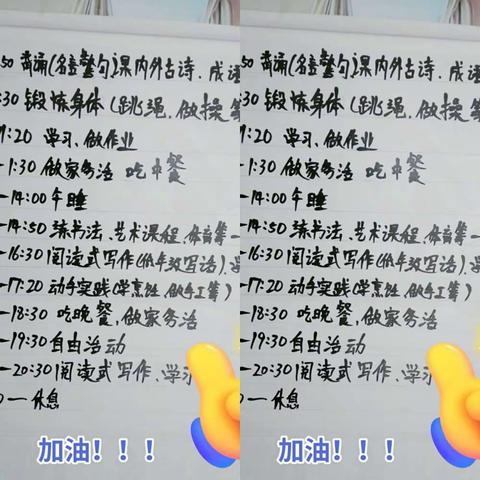 50 背诵(名言警句)课内外古诗、成语
:30 锻炼身体(跳绳,做操等
1:20 学习、做作业
-1:30 做家务活 吃中餐
-14:00 午睡
-14:50 练书法、艺术课程、体育等一
-16:30 阅读式写作(低年级写话)、学
-17:20 动手实践(学烹饪、做手工等)
-18:30 吃晚餐,做家务活
-19:30 自由活动
-20:30 阅读式写作、学习
0一休息
加油!!!
50 背诵(名言警句)课内外古诗、成语
:30 锻炼身体(跳绳,做操等
1:20 学习、做作业
-1:30 做家务活 吃中餐
-14:00 午睡
-14:50 练书法、艺术课程、体育等一
-16:30 阅读式写作(低年级写话)、学
-17:20 动手实践(学烹饪、做手工等)
-18:30 吃晚餐,做家务活
-19:30 自由活动
-20:30 阅读式写作、学习
0一休息
加油!!!